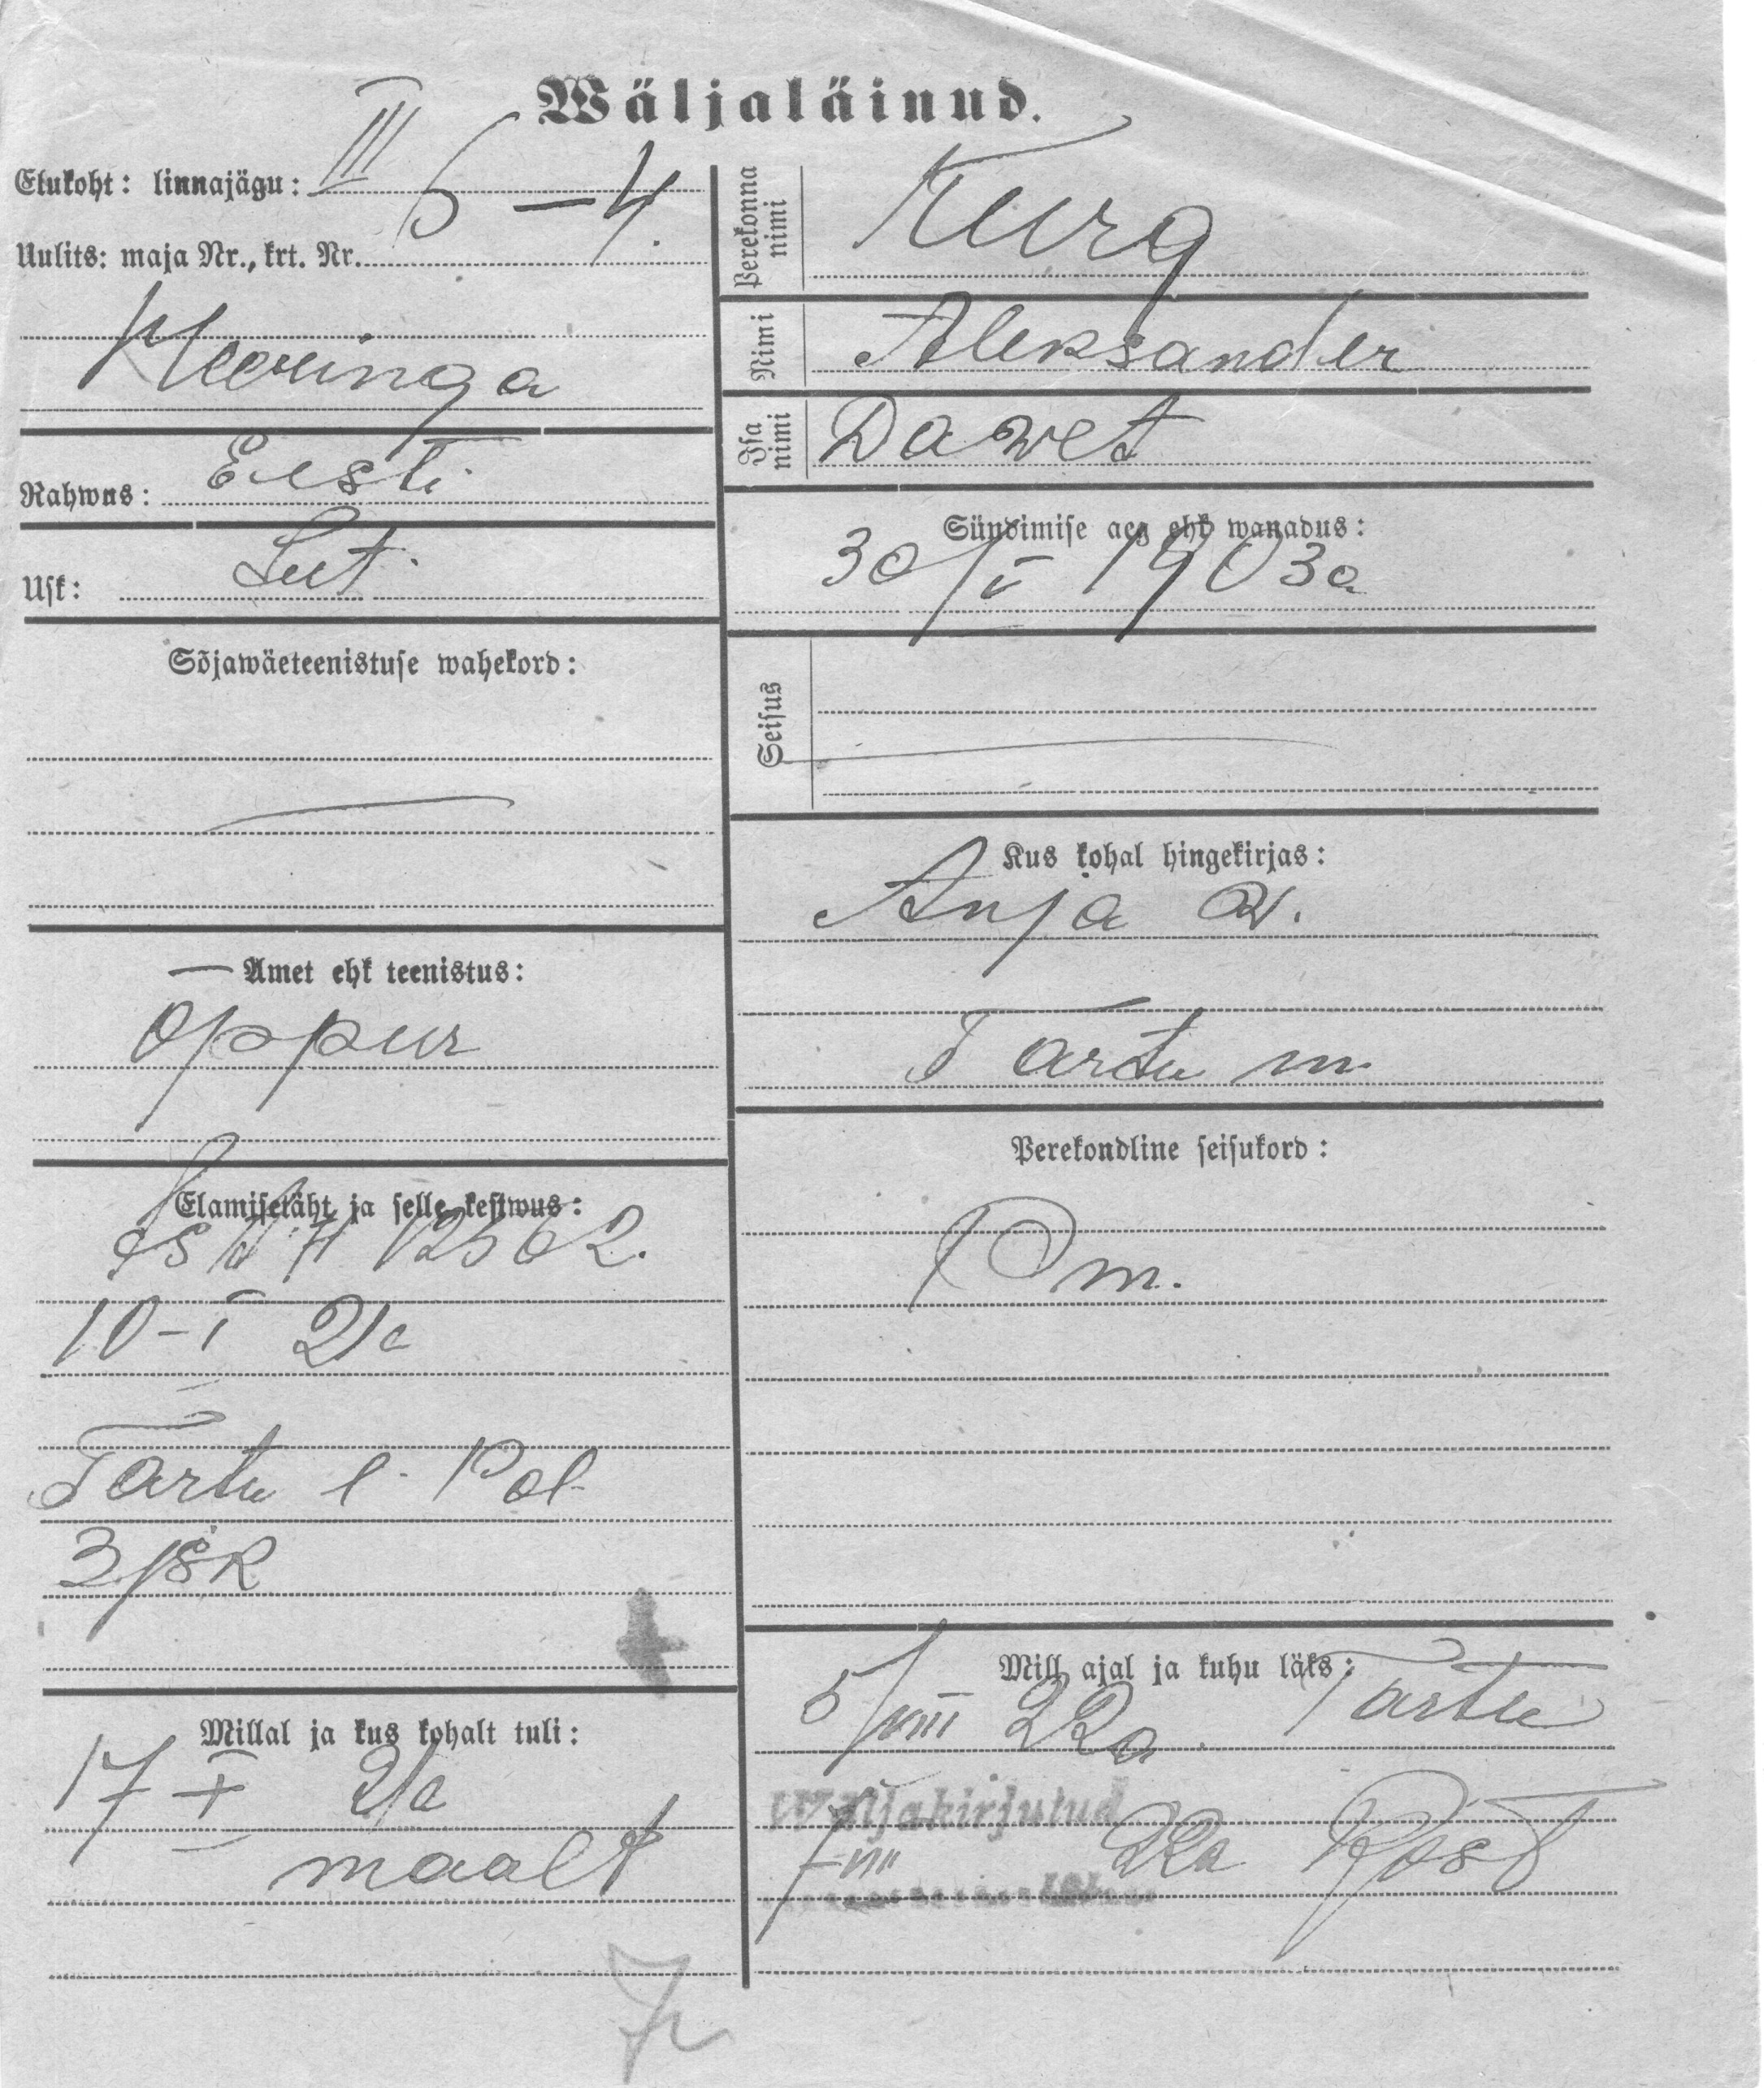 Wäljaläinud.
Elukoht: linnajägu: III
5 — 4.
Uulits: maja Nr., krt. Nr.
Rahwus: Eesti
Usk: Lut.
Sõjawäeteenistuse wahekord:
Amet ehk teenistus:
Oppur
Elamisetäht ja selle kestwus:
12562.
10-I 21a
Tartu l. Pol.
3 jsk
Millal ja kus kohalt tuli:
17 X 21a
maalt
Perekonna nimi
Kurg
Nimi
Aleksander
Isa nimi
Dawet
Sündimise aeg ehk wanadus:
30/V 1903a
Seisus
Kus kohal hingekirjas:
Anja w.
Tartu m.
Perekondline seisukord:
Pm.
Mill ajal ja kuhu läks:
5/VIII 22a. Tartu
Wäljakirjutud
7-VIII 22a
7